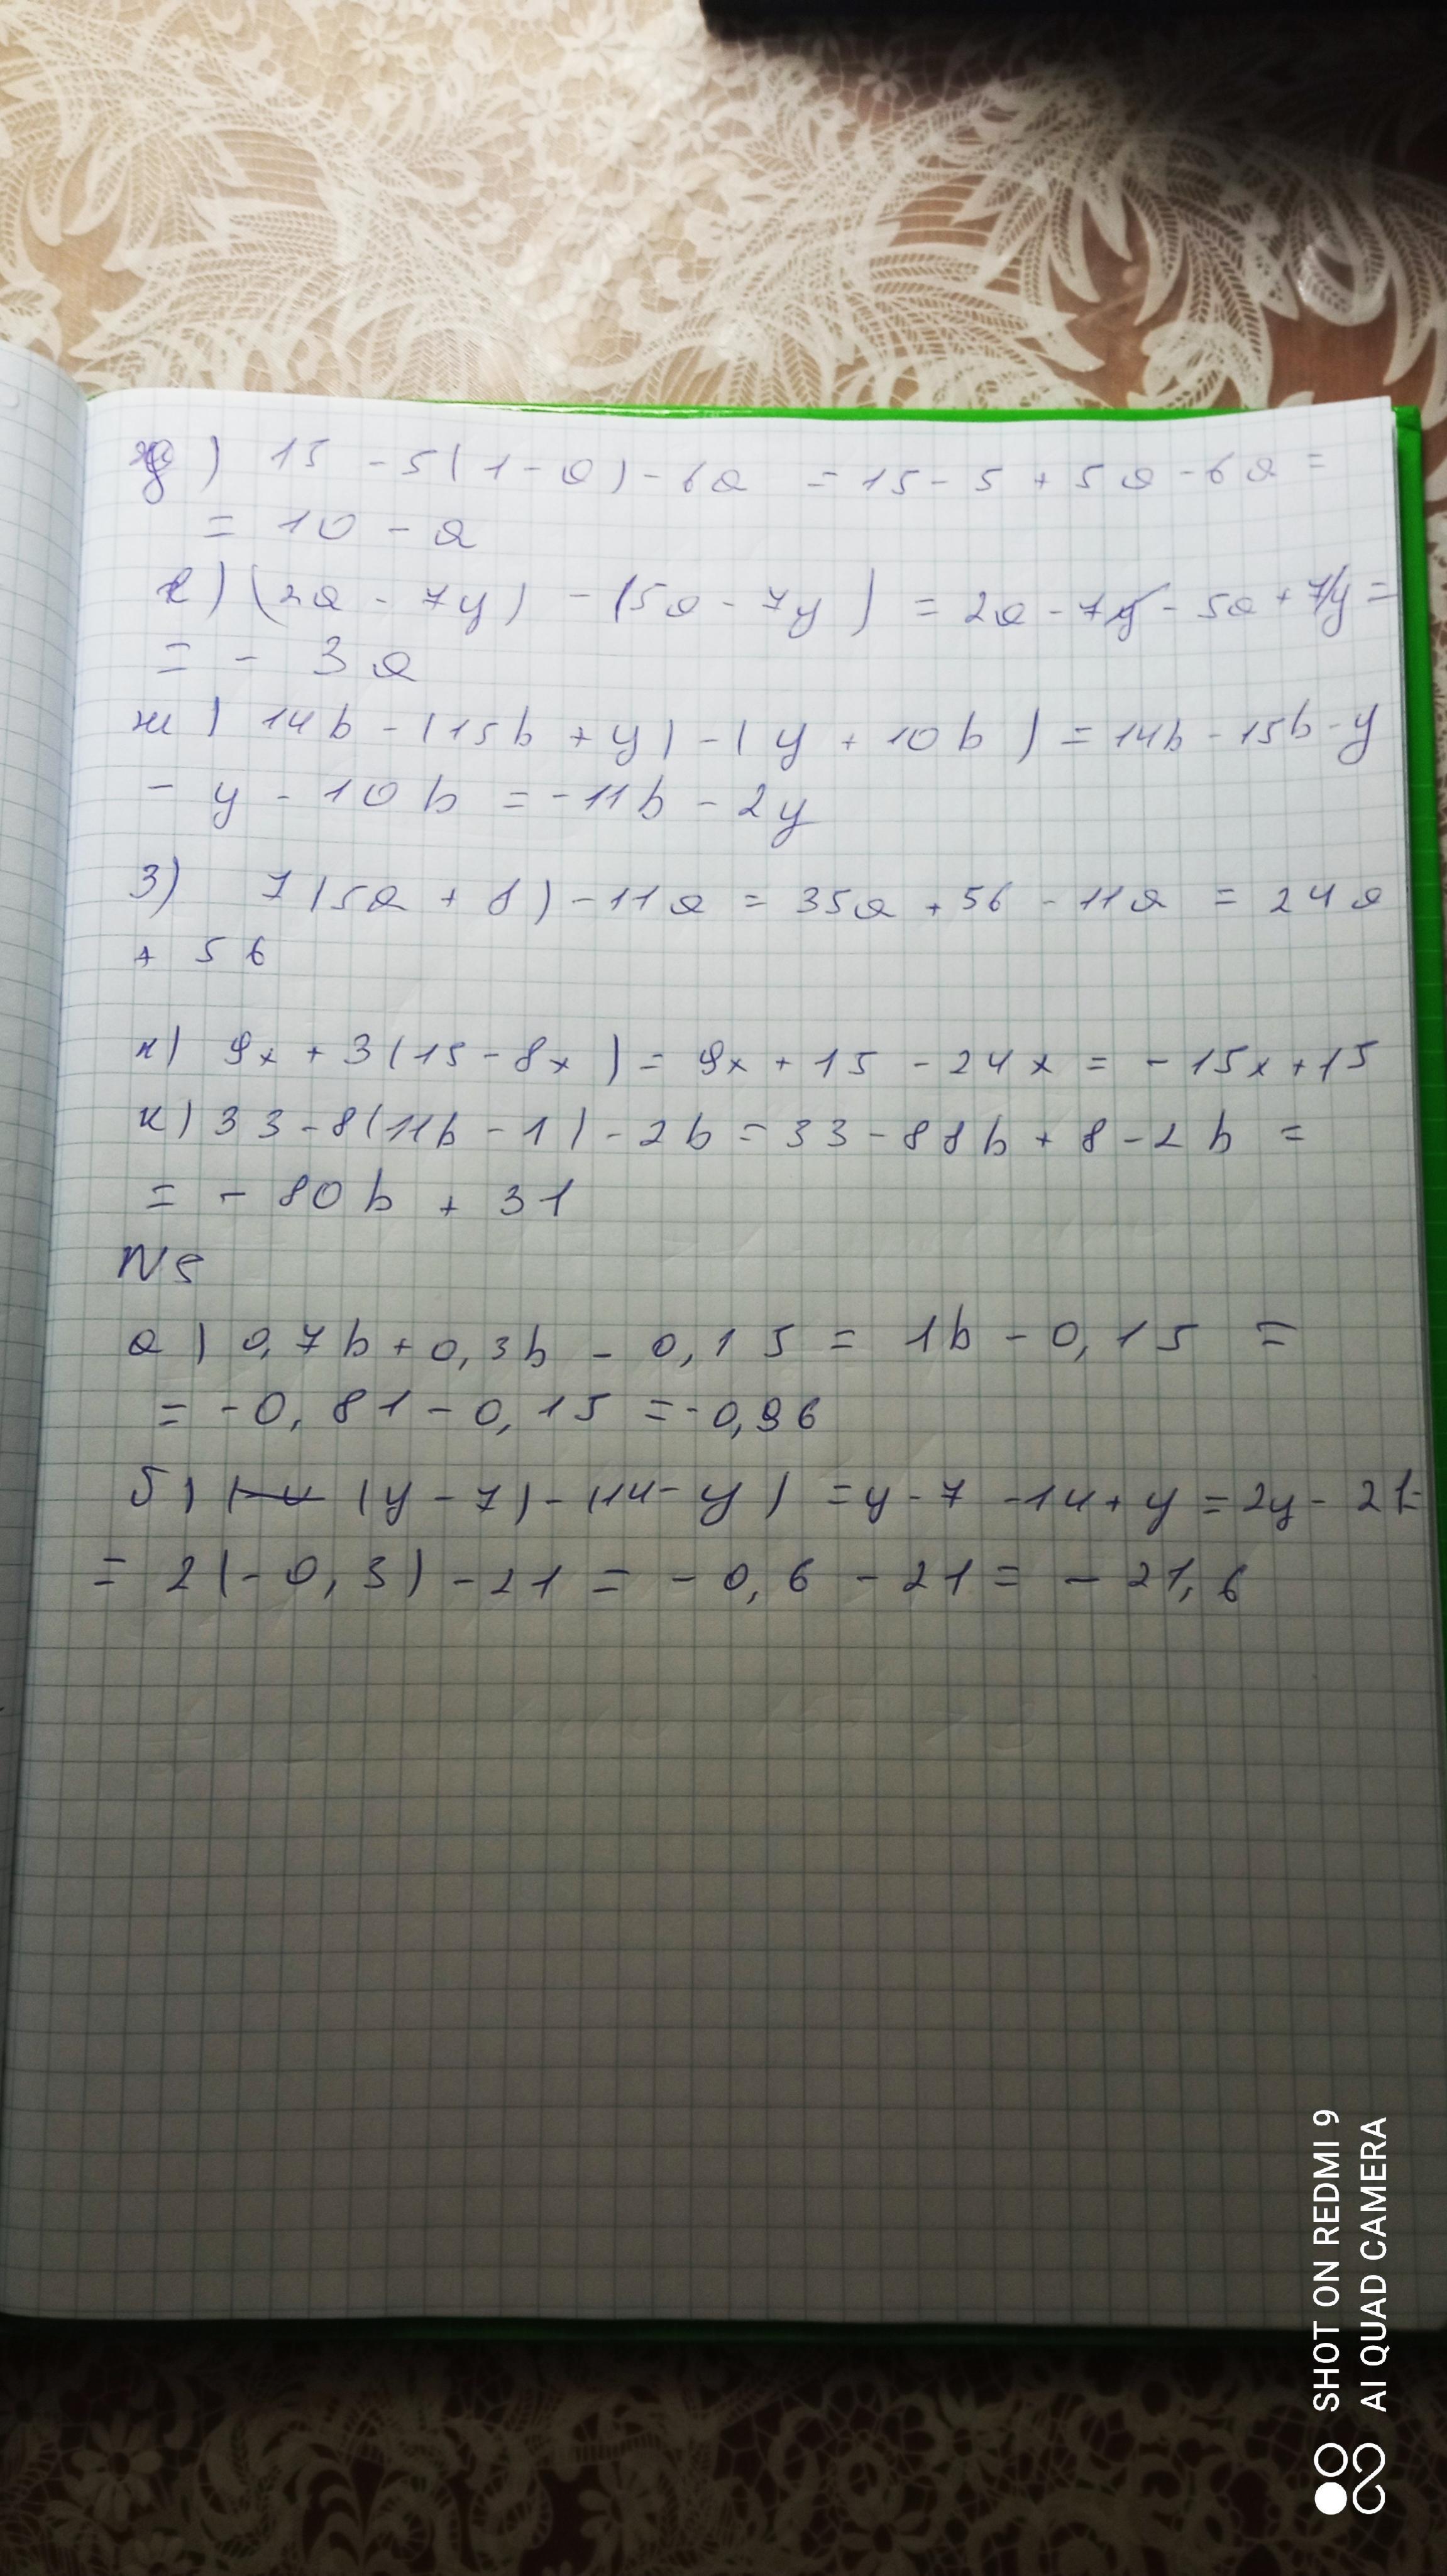 д) 15 - 5(1 - a) - 6a = 15 - 5 + 5a - 6a =
= 10 - a
е) (2a - 7y) - (5a - 7y) = 2a - 7y - 5a + 7y =
= - 3a
ж) 14b - (15b + y) - (y + 10b) = 14b - 15b - y
- y - 10b = -11b - 2y
з) 7(5a + 8) - 11a = 35a + 56 - 11a = 24a
+ 56
и) 9x + 3(15 - 8x) = 9x + 15 - 24x = - 15x + 15
к) 33 - 8(11b - 1) - 2b = 33 - 88b + 8 - 2b =
= - 80b + 31
N5
а) 0,7b + 0,3b - 0,15 = 1b - 0,15 =
= -0,81 - 0,15 = -0,96
б) (y - 7) - (14 - y) = y - 7 - 14 + y = 2y - 21=
= 2(-0,3) - 21 = - 0,6 - 21 = - 21,6
SHOT ON REDMI 9
AI QUAD CAMERA